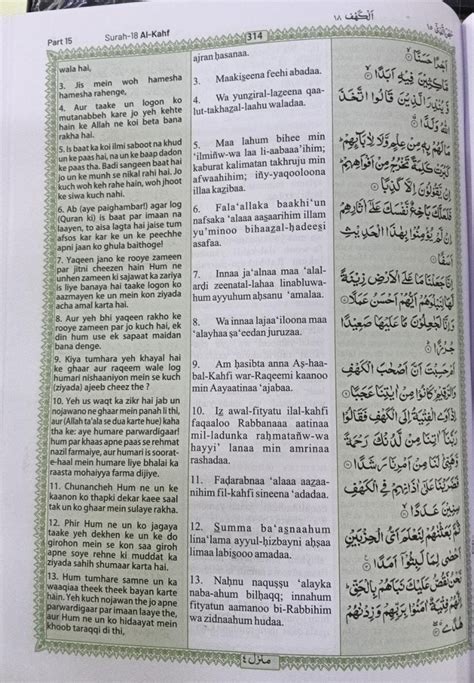 Part 15
Surah-18 Al-Kahf
314
الكهف ١٨
wala hai,
3. Jis mein woh hamesha
hamesha rahenge,
4. Aur taake un logon ko
mutanabbeh kare jo yeh kehte
hain ke Allah ne koi beta bana
rakha hai.
5. Is baat ka koi ilmi saboot na khud
un ke paas hai, na un ke baap dadon
ke paas tha. Badi sangeen baat hai
jo un ke munh se nikal rahi hai. Jo
kuch woh keh rahe hain, woh jhoot
ke siwa kuch nahi.
6. Ab (aye paighambar!) agar log
(Quran ki) is baat par imaan na
laayen, to aisa lagta hai jaise tum
afsos kar kar ke un ke peechhe
apni jaan ko ghula baithoge!
7. Yaqeen jano ke rooye zameen
par jitni cheezen hain Hum ne
unhen zameen ki sajawat ka zariya
is liye banaya hai taake logon ko
aazmayen ke un mein kon ziyada
acha amal karta hai.
8. Aur yeh bhi yaqeen rakho ke
rooye zameen par jo kuch hai, ek
din hum use ek sapaat maidan
bana denge.
9. Kiya tumhara yeh khayal hai
ke ghaar aur raqeem wale log
humari nishaaniyon mein se kuch
(ziyada) ajeeb cheez the ?
10. Yeh us waqt ka zikr hai jab un
nojawano ne ghaar mein panah li thi,
aur (Allah ta'ala se dua karte hue) kaha
tha ke: aye humare parwardigaar!
hum par khaas apne paas se rehmat
nazil farmaiye, aur humari is soorat-
e-haal mein humare liye bhalai ka
raasta mohaiyya farma dijiye.
11. Chunancheh Hum ne un ke
kaanon ko thapki dekar kaee saal
tak un ko ghaar mein sulaye rakha.
12. Phir Hum ne un ko jagaya
taake yeh dekhen ke un ke do
girohon mein se kon saa giroh
apne soye rehne ki muddat ka
ziyada sahih shumaar karta hai.
13. Hum tumhare samne un ka
waaqiaa theek theek bayan karte
hain. Yeh kuch nojawan the jo apne
parwardigaar par imaan laaye the,
aur Hum ne un ko hidaayat mein
khoob taraqqi di thi,
ajran ḥasanaa.
3. Maakiṡeena feehi abadaa.
4. Wa yunẓiral-laẓeena qaa-
lut-takhaẓal-laahu waladaa.
5. Maa lahum bihee min
'ilmiñw-wa laa li-aabaaa'ihim;
kaburat kalimatan takhruju min
afwaahihim; iñy-yaqooloona
illaa kaẓibaa.
6. Fala'allaka baakhi'un
nafsaka 'alaaa aaṡaarihim illam
yu'minoo bihaaẓal-ḥadeeṡi
asafaa.
7. Innaa ja'alnaa maa 'alal-
arḍi zeenatal-lahaa linabluwa-
hum ayyuhum aḥsanu 'amalaa.
8. Wa innaa lajaa'iloona maa
'alayhaa ṣa'eedan juruzaa.
9. Am ḥasibta anna Aṣ-ḥaa-
bal-Kahfi war-Raqeemi kaanoo
min Aayaatinaa 'ajabaa.
10. Iẓ awal-fityatu ilal-kahfi
faqaaloo Rabbanaaa aatinaa
mil-ladunka raḥmatañw-wa
hayyi' lanaa min amrinaa
rashadaa.
11. Faḍarabnaa 'alaaa aaẓaa-
nihim fil-kahfi sineena 'adadaa.
12. Ṡumma ba'aṡnaahum
lina'lama ayyul-ḥizbayni aḥṣaa
limaa labiṡooo amadaa.
13. Naḥnu naquṣṣu 'alayka
naba-ahum bilḥaqq; innahum
fityatun aamanoo bi-Rabbihim
wa zidnaahum hudaa.
اَجْرًا حَسَنًا
مَّاكِثِيْنَ فِيْهِ اَبَدًا
وَّيُنْذِرَ الَّذِيْنَ قَالُوا اتَّخَذَ
اللّٰهُ وَلَدًا
مَا لَهُمْ بِهٖ مِنْ عِلْمٍ وَّلَا لِاٰبَآئِهِمْ
كَبُرَتْ كَلِمَةً تَخْرُجُ مِنْ اَفْوَاهِهِمْ
اِنْ يَّقُوْلُوْنَ اِلَّا كَذِبًا
فَلَعَلَّكَ بَاخِعٌ نَّفْسَكَ عَلٰٓى اٰثَارِهِمْ
اِنْ لَّمْ يُؤْمِنُوْا بِهٰذَا الْحَدِيْثِ
اَسَفًا
اِنَّا جَعَلْنَا مَا عَلَى الْاَرْضِ زِيْنَةً
لَّهَا لِنَبْلُوَهُمْ اَيُّهُمْ اَحْسَنُ عَمَلًا
وَاِنَّا لَجٰعِلُوْنَ مَا عَلَيْهَا صَعِيْدًا
جُرُزًا
اَمْ حَسِبْتَ اَنَّ اَصْحٰبَ الْكَهْفِ
وَالرَّقِيْمِ كَانُوْا مِنْ اٰيٰتِنَا عَجَبًا
اِذْ اَوَى الْفِتْيَةُ اِلَى الْكَهْفِ فَقَالُوْا
رَبَّنَآ اٰتِنَا مِنْ لَّدُنْكَ رَحْمَةً
وَّهَيِّئْ لَنَا مِنْ اَمْرِنَا رَشَدًا
فَضَرَبْنَا عَلٰٓى اٰذَانِهِمْ فِي الْكَهْفِ
سِنِيْنَ عَدَدًا
ثُمَّ بَعَثْنٰهُمْ لِنَعْلَمَ اَيُّ الْحِزْبَيْنِ
اَحْصٰى لِمَا لَبِثُوْٓا اَمَدًا
نَحْنُ نَقُصُّ عَلَيْكَ نَبَاَهُمْ بِالْحَقِّ
اِنَّهُمْ فِتْيَةٌ اٰمَنُوْا بِرَبِّهِمْ وَزِدْنٰهُمْ
هُدًى
منزل ٤